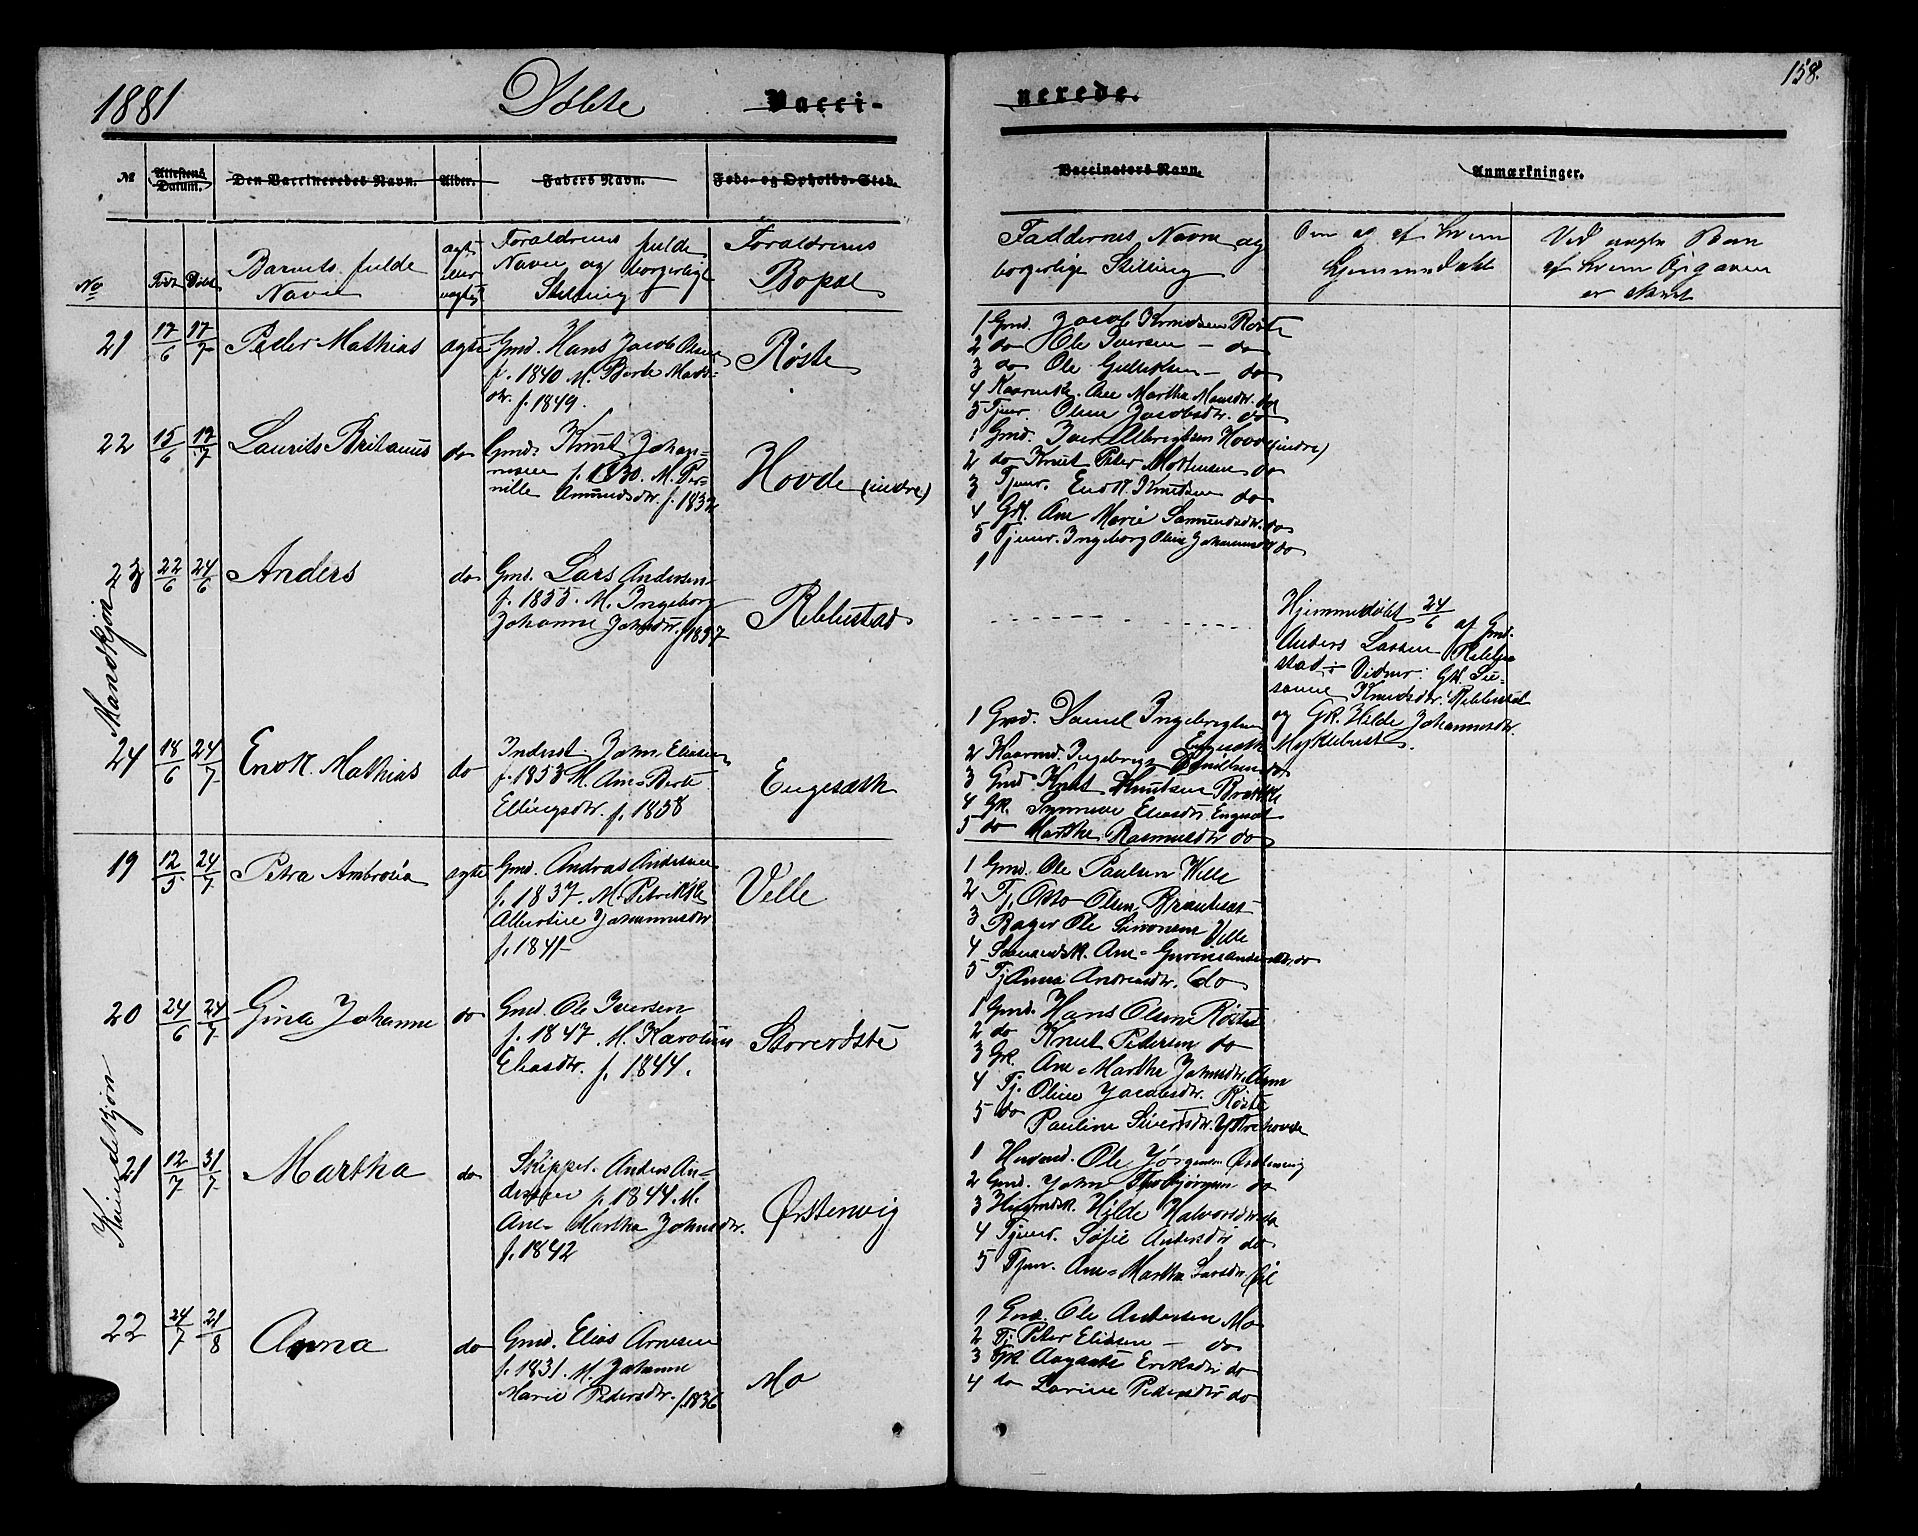 1881 Döbte Vacci-
nerede. 158.
No Attestens Datum. Den Vaccineredes Navn. Alder. Faders Navn. Føde- og Opholds-Sted.
Vaccinators Navn. Anmærkninger.
No Født Döbt Barnets fulde Navn ægte eller uægte Forældrenes fulde Navn og borgerlige Stilling Forældrenes Bopæl
Faddernes Navne og borgerlige Stilling Om og af hvem hjemmedøbt Ved uægte Børn af hvem Opgaven er skeet
Mandkjøn
21 17/6 17/7 Peder Mathias ægte Gmd. Hans Jacob Olsen
f. 1840 M. Berte Mads-
dtr. f. 1849.
Røste
1 Gmd. Jacob Knudsen Røste
2 do Ole Iversen - do
3 do Ole - do
4 Ane Martha
5 Tjenr. Oline Jacobsdtr. do
22 15/6 17/7 Laurits Britanus do Gmd. Knut Johan-
nesen f. 1830. M. Per-
nille Amundsdtr. f. 1832
Hovde (indre)
1 Gmd. Iver Albrigtsen Hovde (indre)
2 do Knut Peter Mortensen do
3 Tjenr. Enok Knudsen do
4 Gk. Ane Marie do
5 Tjenr. Ingeborg Oline do
23 22/6 24/6 Anders do Gmd. Lars Andersen
f. 1855. M. Ingeborg
Johanne Johnsdtr. f. 1857
Ribbestad
1
Hjemmedöbt 24/6 af Gmd.
Anders Larsen Ribbe-
stad Vidner: Gk. Su-
sanne Knudsdtr. Ribbestad
og Gk. Hilde Johannesdtr.
Myklebust.
24 18/6 24/7 Enok Mathias do Inderst. John Eliasen
f. 1853 M. Ane Berte
Ellingsdtr. f. 1858
Engesæth
1 Gmd. Daniel Ingebrigtsen
Engesæth
2 Ingebrigt do
3 Gmd Knut Knutsen
4 Gk. Eliasdtr. Engesæt
5 do Marthe Rasmusdtr. do
Kvindekjøn
19 12/5 24/7 Petra Ambrosia ægte Gmd. Andras Andersen
f. 1837. M. Petrikke
Albertine Johannesdtr
f. 1841
Velle
1 Gmd. Ole Paulsen Velle
2 Tj. Olsen
3 Ole Simonsen Velle
4 Ane do
5 Tj Anna Andreasdtr. do
20 24/6 24/7 Gina Johanne do Gmd. Ole Iversen
f. 1847. M. Karoline
Eliasdtr. f. 1844.
Storerøste
1 Gmd. Hans Olsen Røste
2 do Knut Pedersen do
3 Gk. Ane Marthe Johnsdtr.
4 Tj. Oline Jacobsdtr. Røste
5 do Pauline Sivertsdtr. Ytrehovde
21 12/7 31/7 Martha do Skipper. Anders An-
dersen f. 1844. M.
Ane Martha Johnsdtr.
f. 1842
Ørstenvig
1 Ole Jørgensen Ørstenvig
2 Gmd. John do
3 Hilde Halvorsdtr do
4 Tjenr. Sofie Andersdtr do
5 Tjenr. Ane Martha Larsdtr
22 24/7 21/8 Anna do Gmd. Elias Arnesen
f. 1831. M. Johanne
Marie Pedersdtr. f. 1836
Mo
1 Gmd. Ole Andersen Mo
2 Tj Peter Eliasen - do
3 Gk. Eriksdtr do
4 do Larine Pedersdtr do